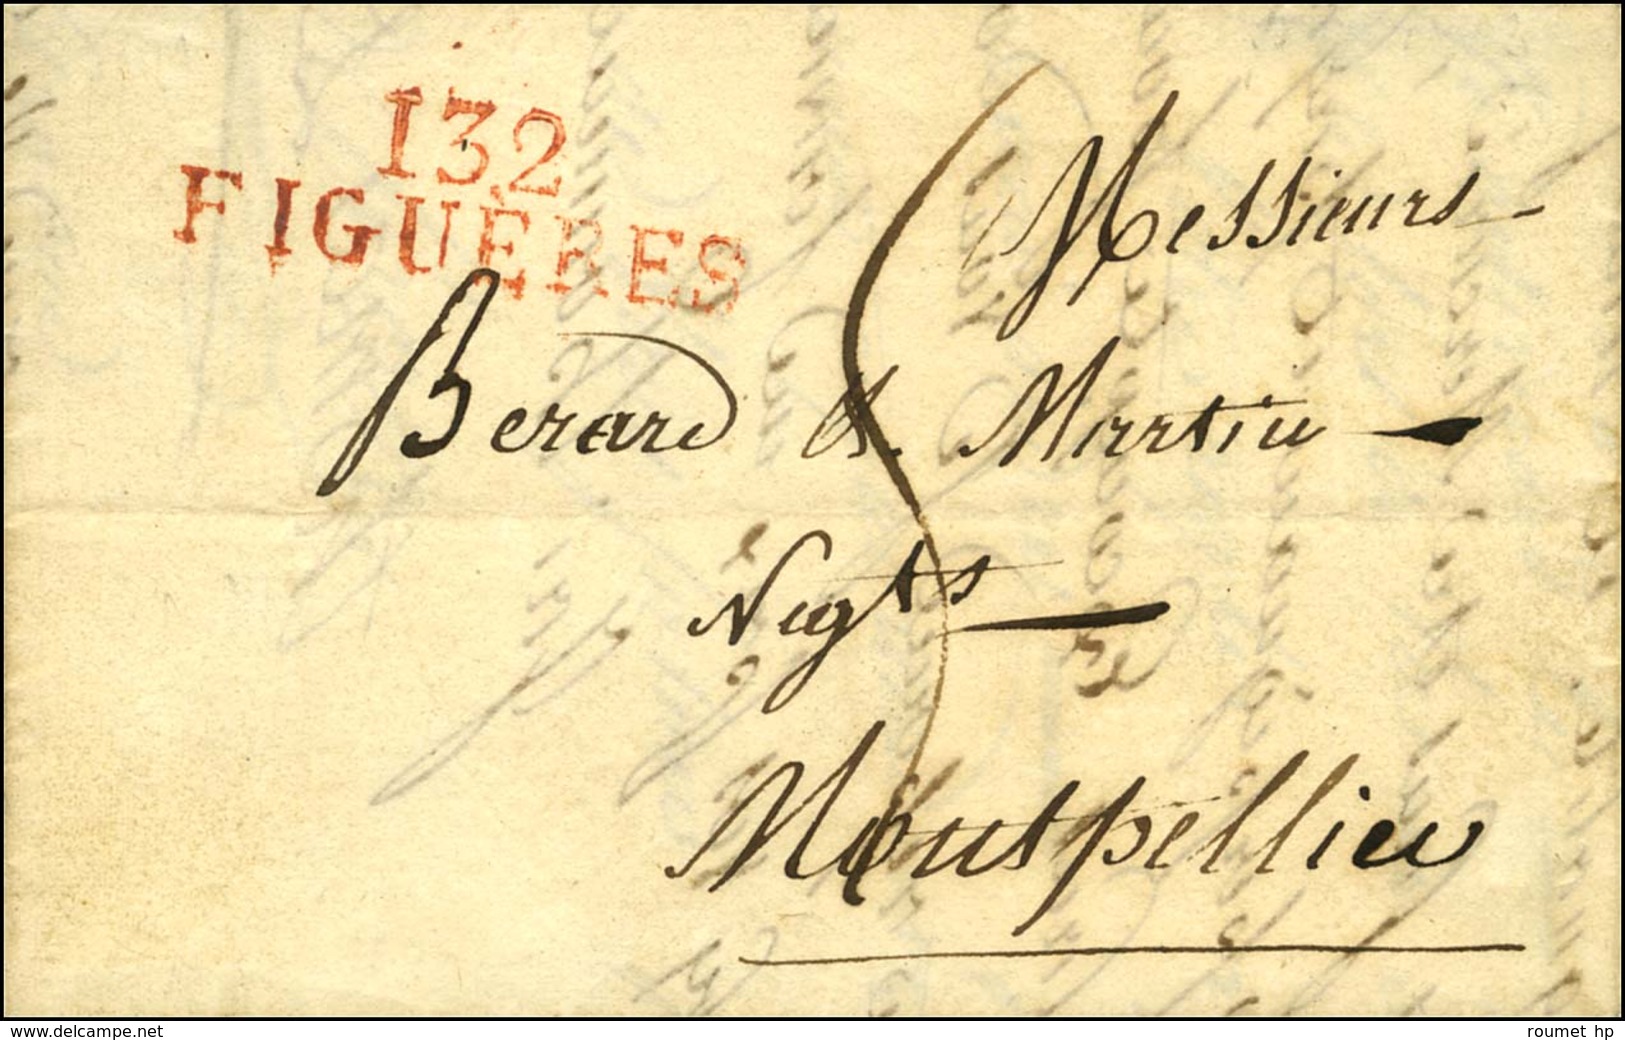 132
FIGUÈRES
Messieurs
Berard & Martin
Negts
Montpellier
www.delcampe.net
roumet hp